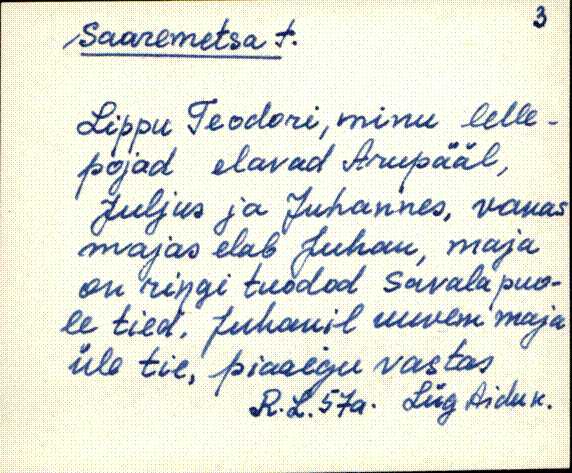 3
Saaremetsa t.
Lippu Teodori, minu lelle-
pojad elavad Arupääl,
Juljus ja Juhannes, vanas
majas elab Juhan, maja
on ringi tuodod Savala puo-
le tied. Juhanil uuvem maja
üle tie, piaaegu vastas
R.L. 57a. Lüg Aidu k.